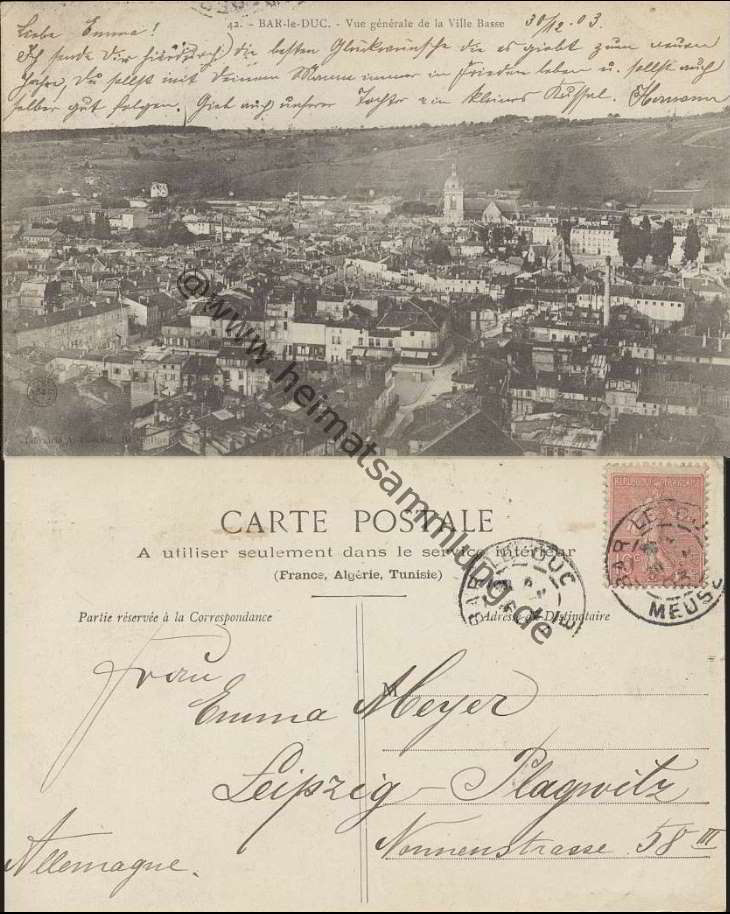 42. - BAR-le-DUC. - Vue générale de la Ville Basse 30/12.03.
Liebe Emma!
Ich sende Dir hierdurch die besten Glückwünsche die es giebt zum neuen
Jahre, Du sollst mit Deinem Manne immer in Frieden leben u. sollst auch
selber gut folgen. Gieb auch unserer Tochter ein kleines Kussel. Hermann
@www.heimatsammlung.de
CARTE POSTALE
A utiliser seulement dans le service intérieur
(France, Algérie, Tunisie)
Partie réservée à la Correspondance
Adresse du Destinataire
REPUBLIQUE FRANÇAISE
BAR LE DUC
BAR LE DUC
MEUSE
Frau
M
Emma Meyer
Leipzig-Plagwitz
Nonnenstrasse 58 III
Allemagne.